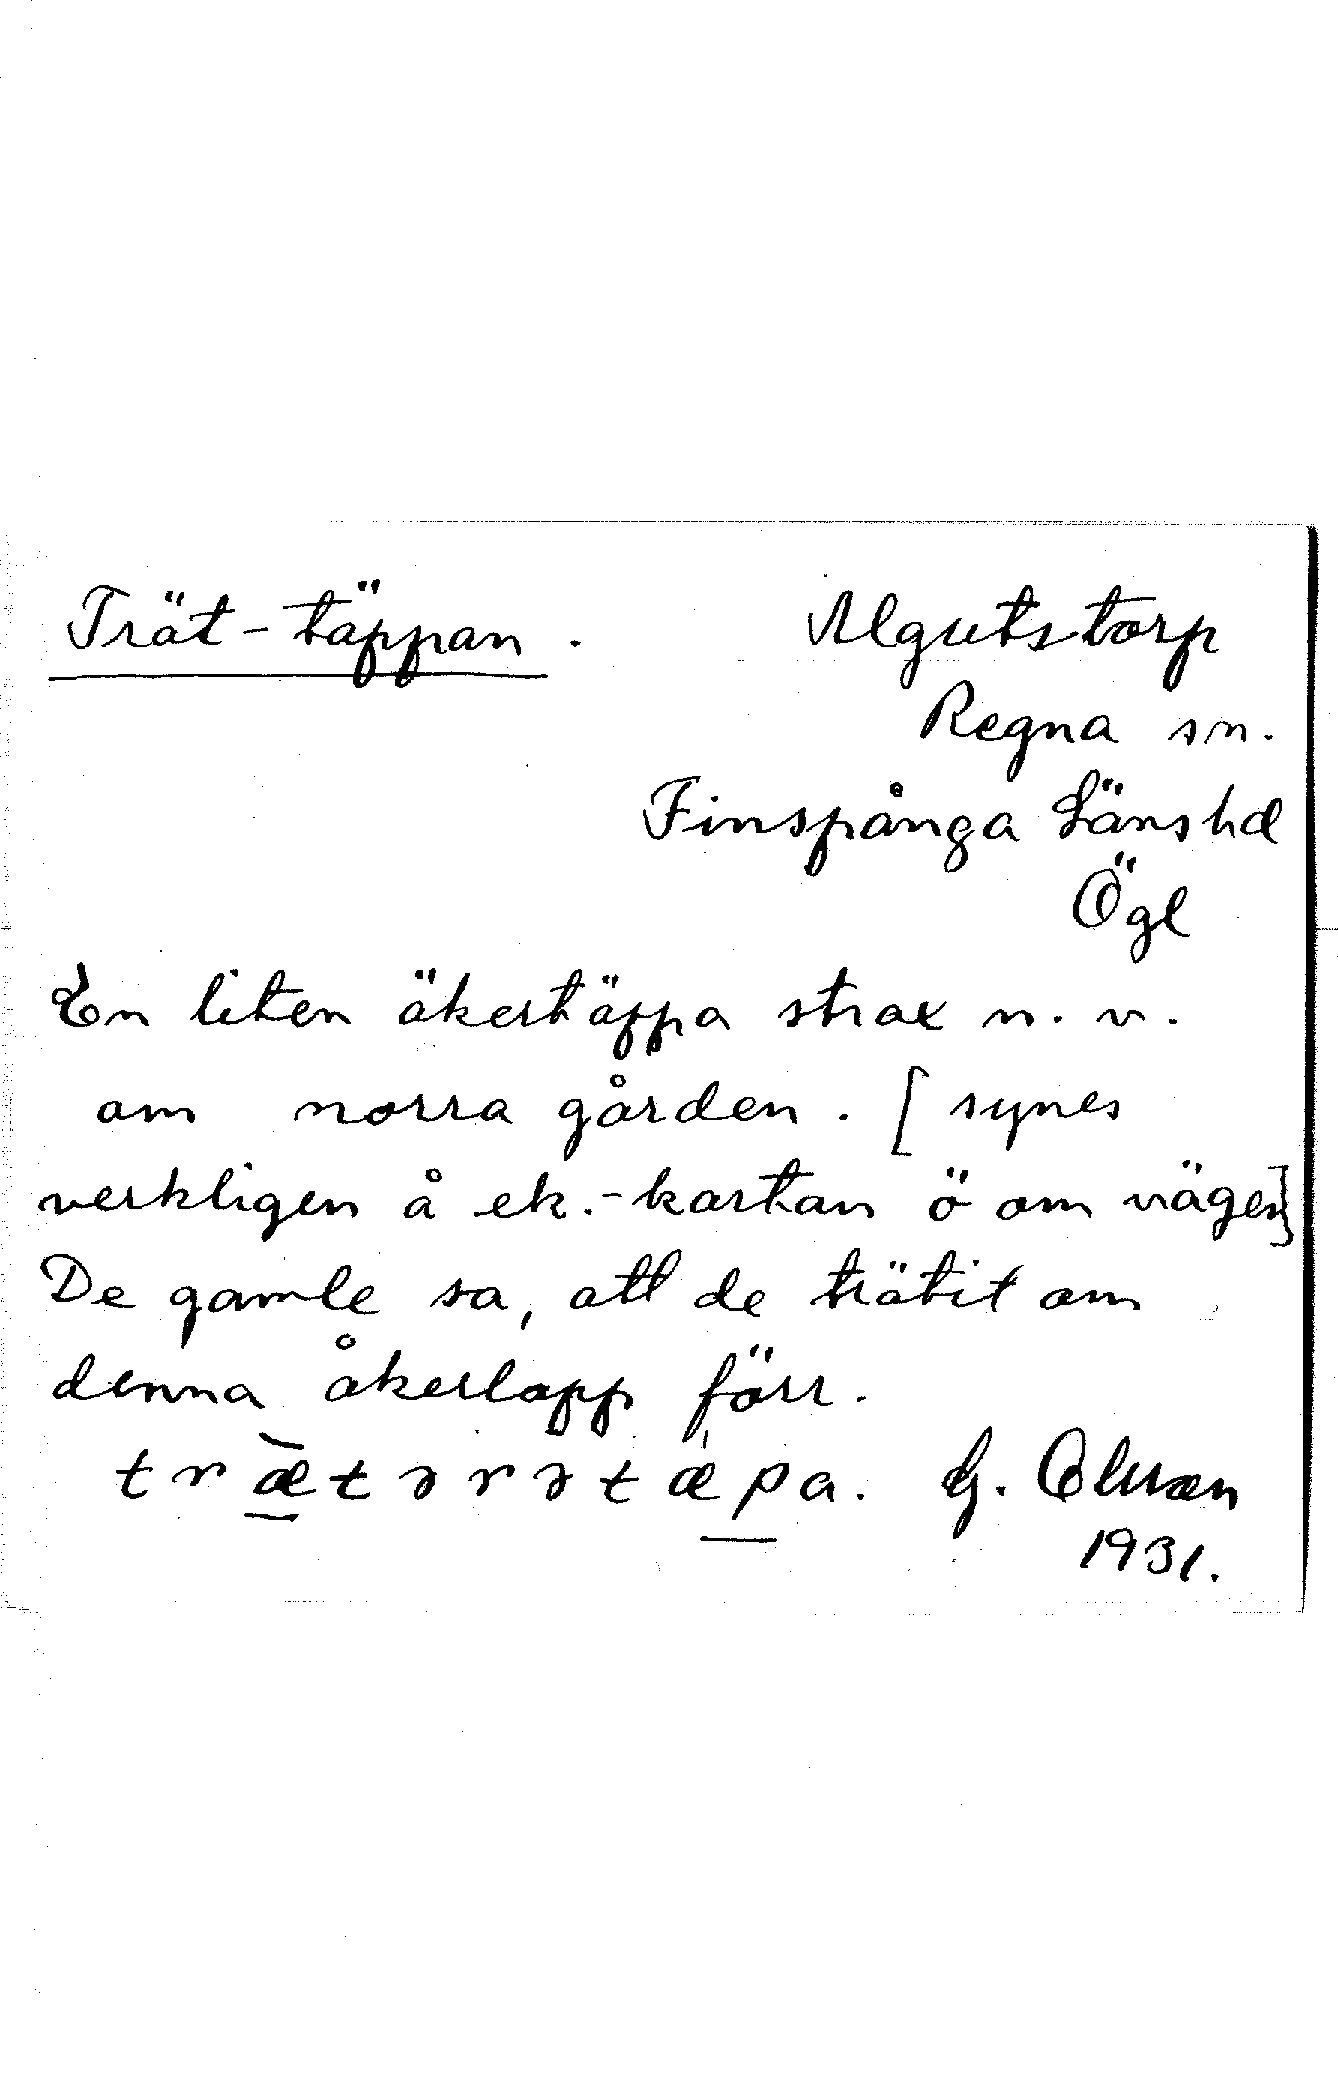 Trät-täppan. Algutstorp
Regna sn.
Finspånga Länshd
Ögl
En liten äkertäppa strax n.v.
om norra gården. [synes
verkligen å ek.-kartan ö om vägen]
De gamle sa, att de trätit om
denna åkerlapp förr.
træ̀tərətæ̀pa. G. Olsson
1931.